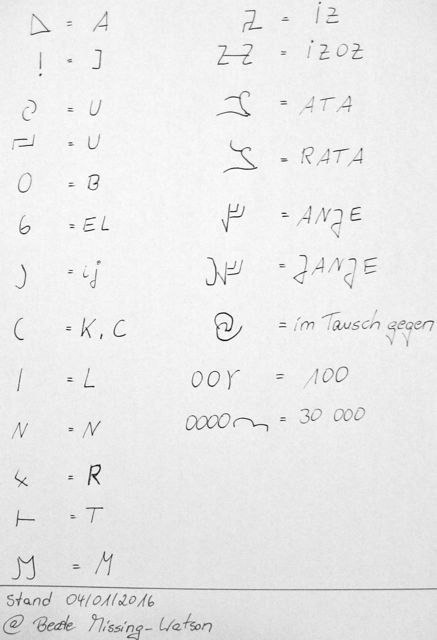 = A
! = J
= U
= U
0 = B
6 = EL
) = ij
( = K, C
| = L
N = N
= R
= T
M = M
= iZ
= iZOZ
= ATA
= RATA
= ANJE
= JANJE
= im Tausch gegen
00Y = 100
0000 = 30 000
Stand 04/01/2016
@ Beate Missing-Watson